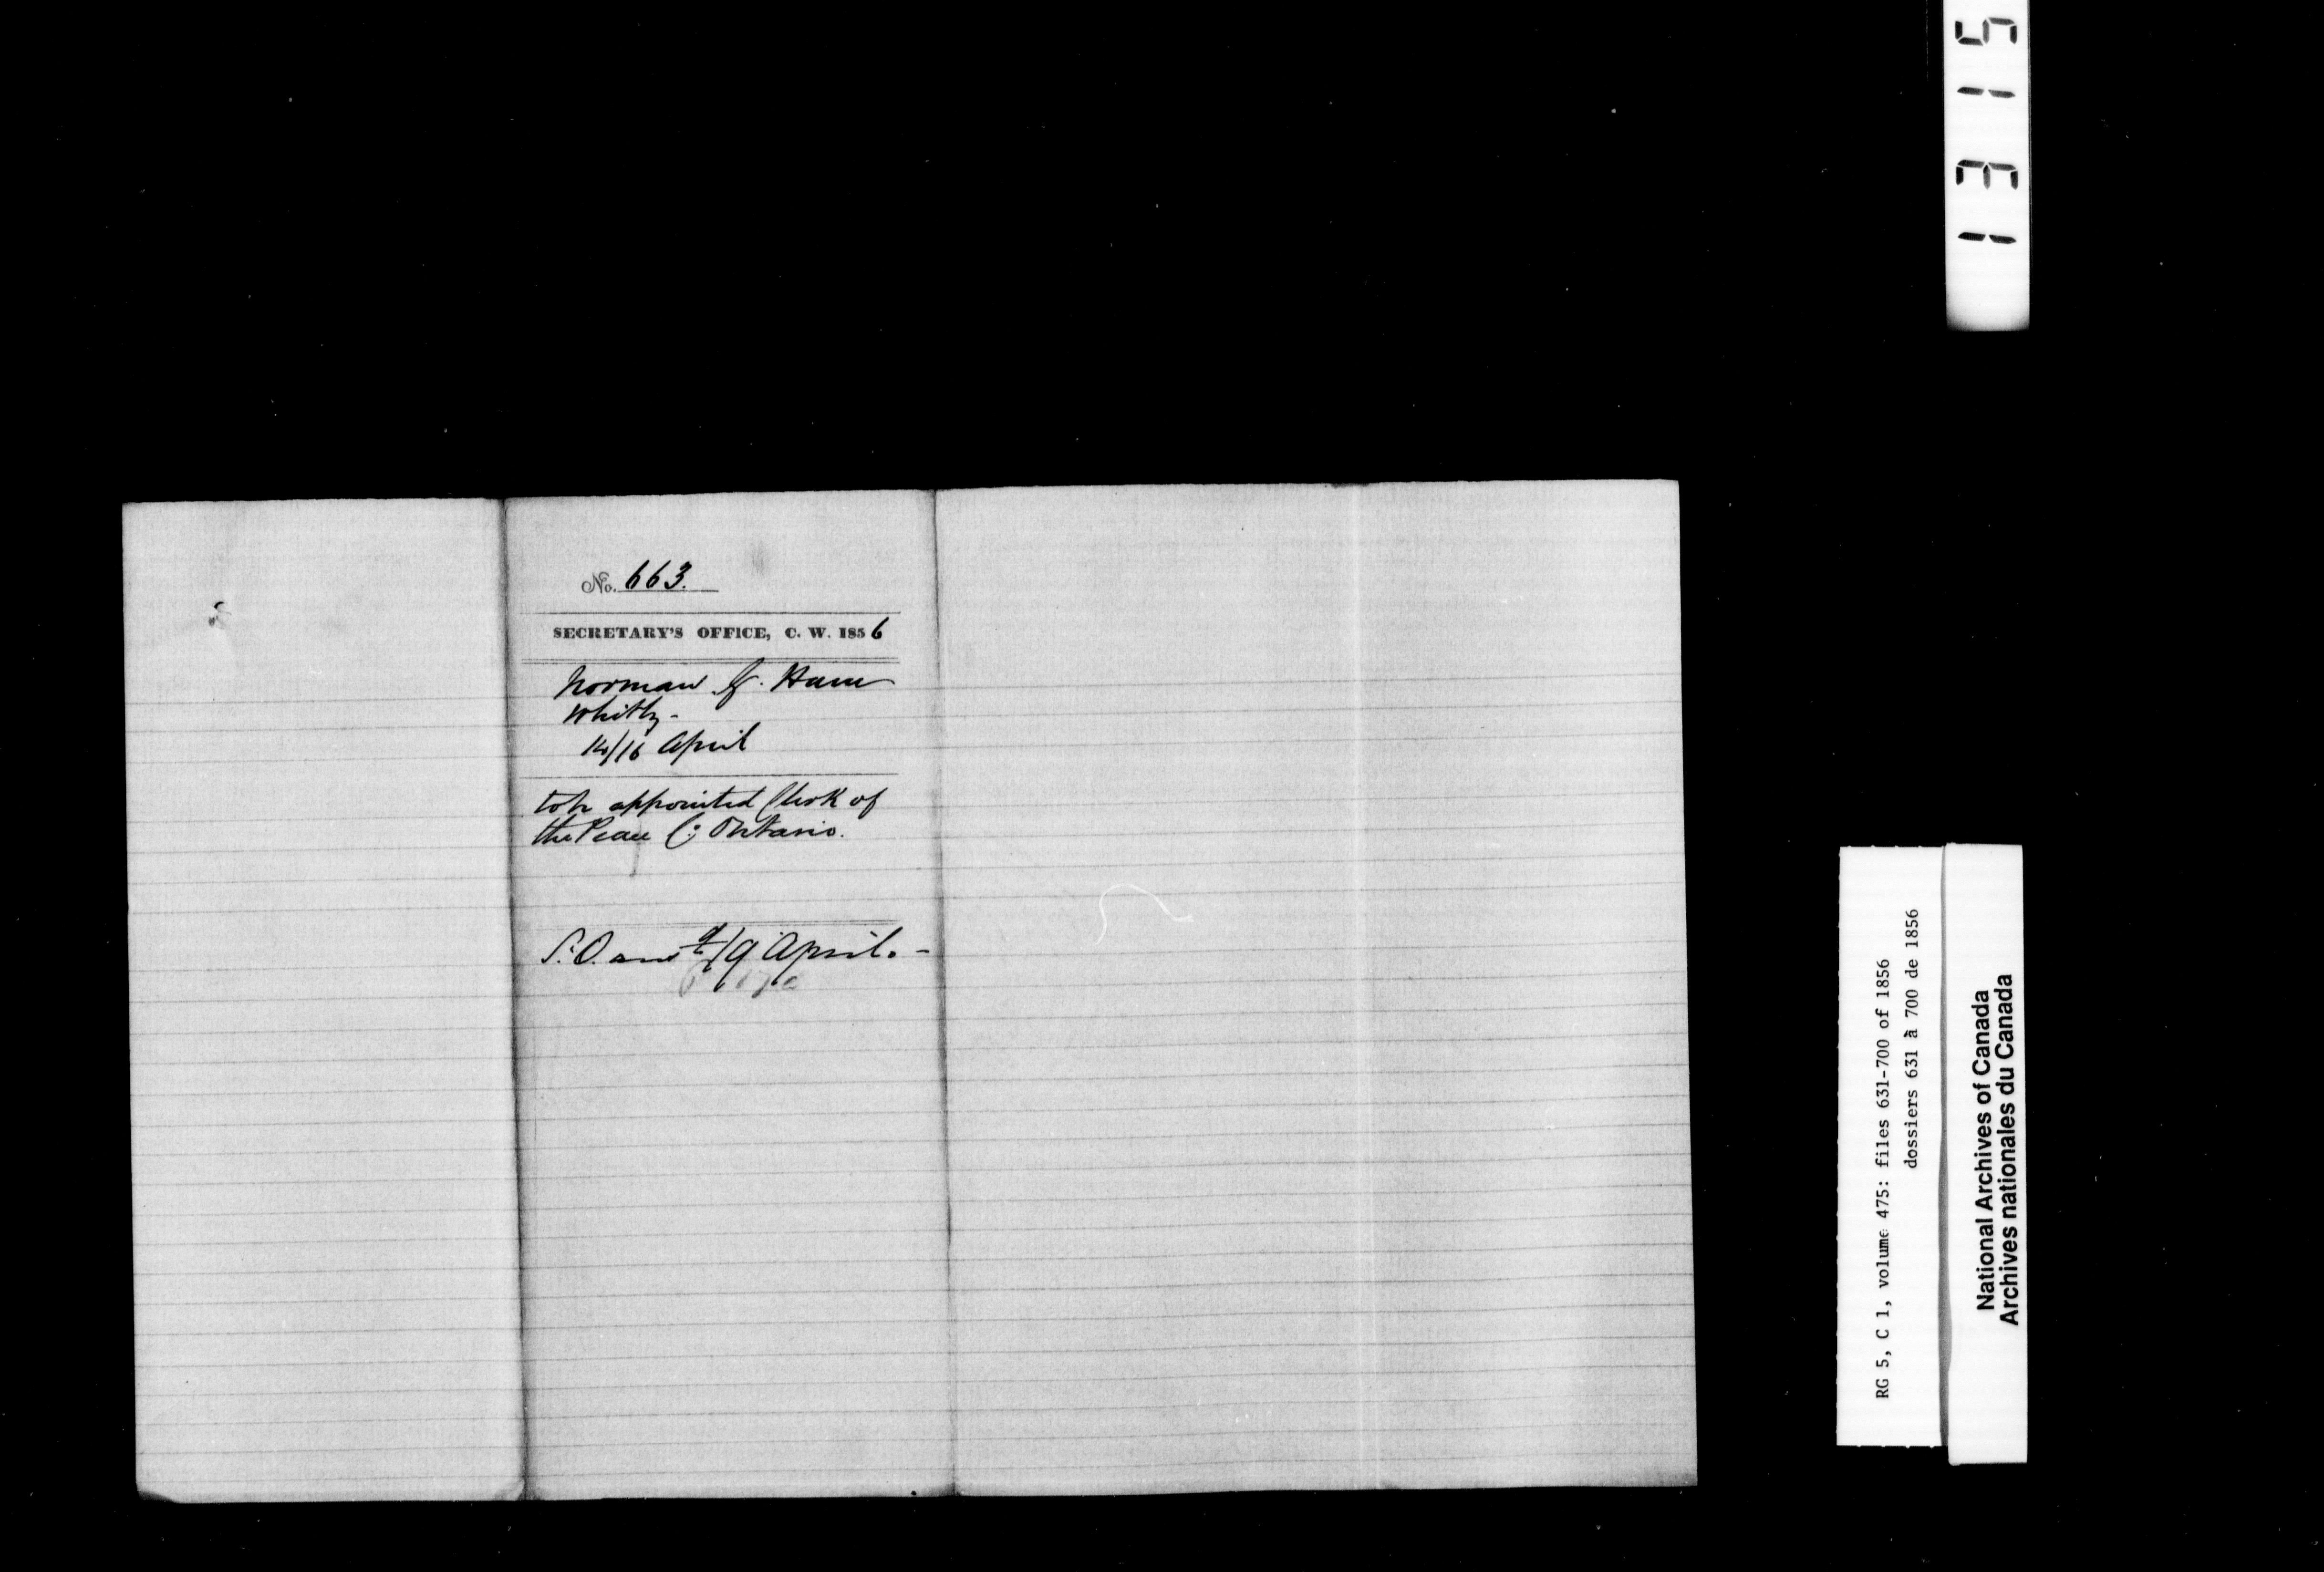 No. 663.
SECRETARY'S OFFICE, C. W. 1856
Norman G. Ham
Whitby-
14/16 April
to be appointed Clerk of
the Peace C: Ontario.
S.O. ansd 19 April. -
1315
RG 5, C 1, volume 475: files 631-700 of 1856
dossiers 631 à 700 de 1856
National Archives of Canada
Archives nationales du Canada